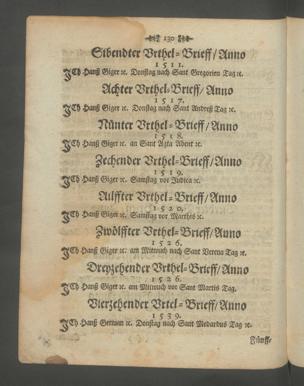 130
Sibendter Vrthel-Brieff/Anno
1511.
ICh Hanß Giger ꝛc. Donstag nach Sant Gregorien Tag ꝛc.
Achter Vrthel-Brieff/Anno
1517.
ICh Hanß Giger ꝛc. Donstag nach Sant Andreß Tag ꝛc.
Nünter Vrthel-Brieff/Anno
1518.
ICh Hanß Giger ꝛc. an Sant Agta Abent ꝛc.
Zechender Vrthel-Brieff/Anno
1519.
ICh Hanß Giger ꝛc. Samstag vor Judica ꝛc.
Ailffter Vrthel-Brieff/Anno
1520.
ICh Hanß Giger ꝛc. Samstag vor Matthis ꝛc.
Zwölffter Vrthel-Brieff/Anno
1526.
ICh Hanß Giger ꝛc. am Mittwuch nach Sant Verena Tag ꝛc.
Dreyzehender Vrthel-Brieff/Anno
1526.
ICh Hanß Giger ꝛc. am Mittwuch vor Sant Martis Tag.
Vierzehender Vrtel-Brieff/Anno
1539.
ICh Hanß ꝛc. Donstag nach Sant Medardus Tag ꝛc.
Fünff-